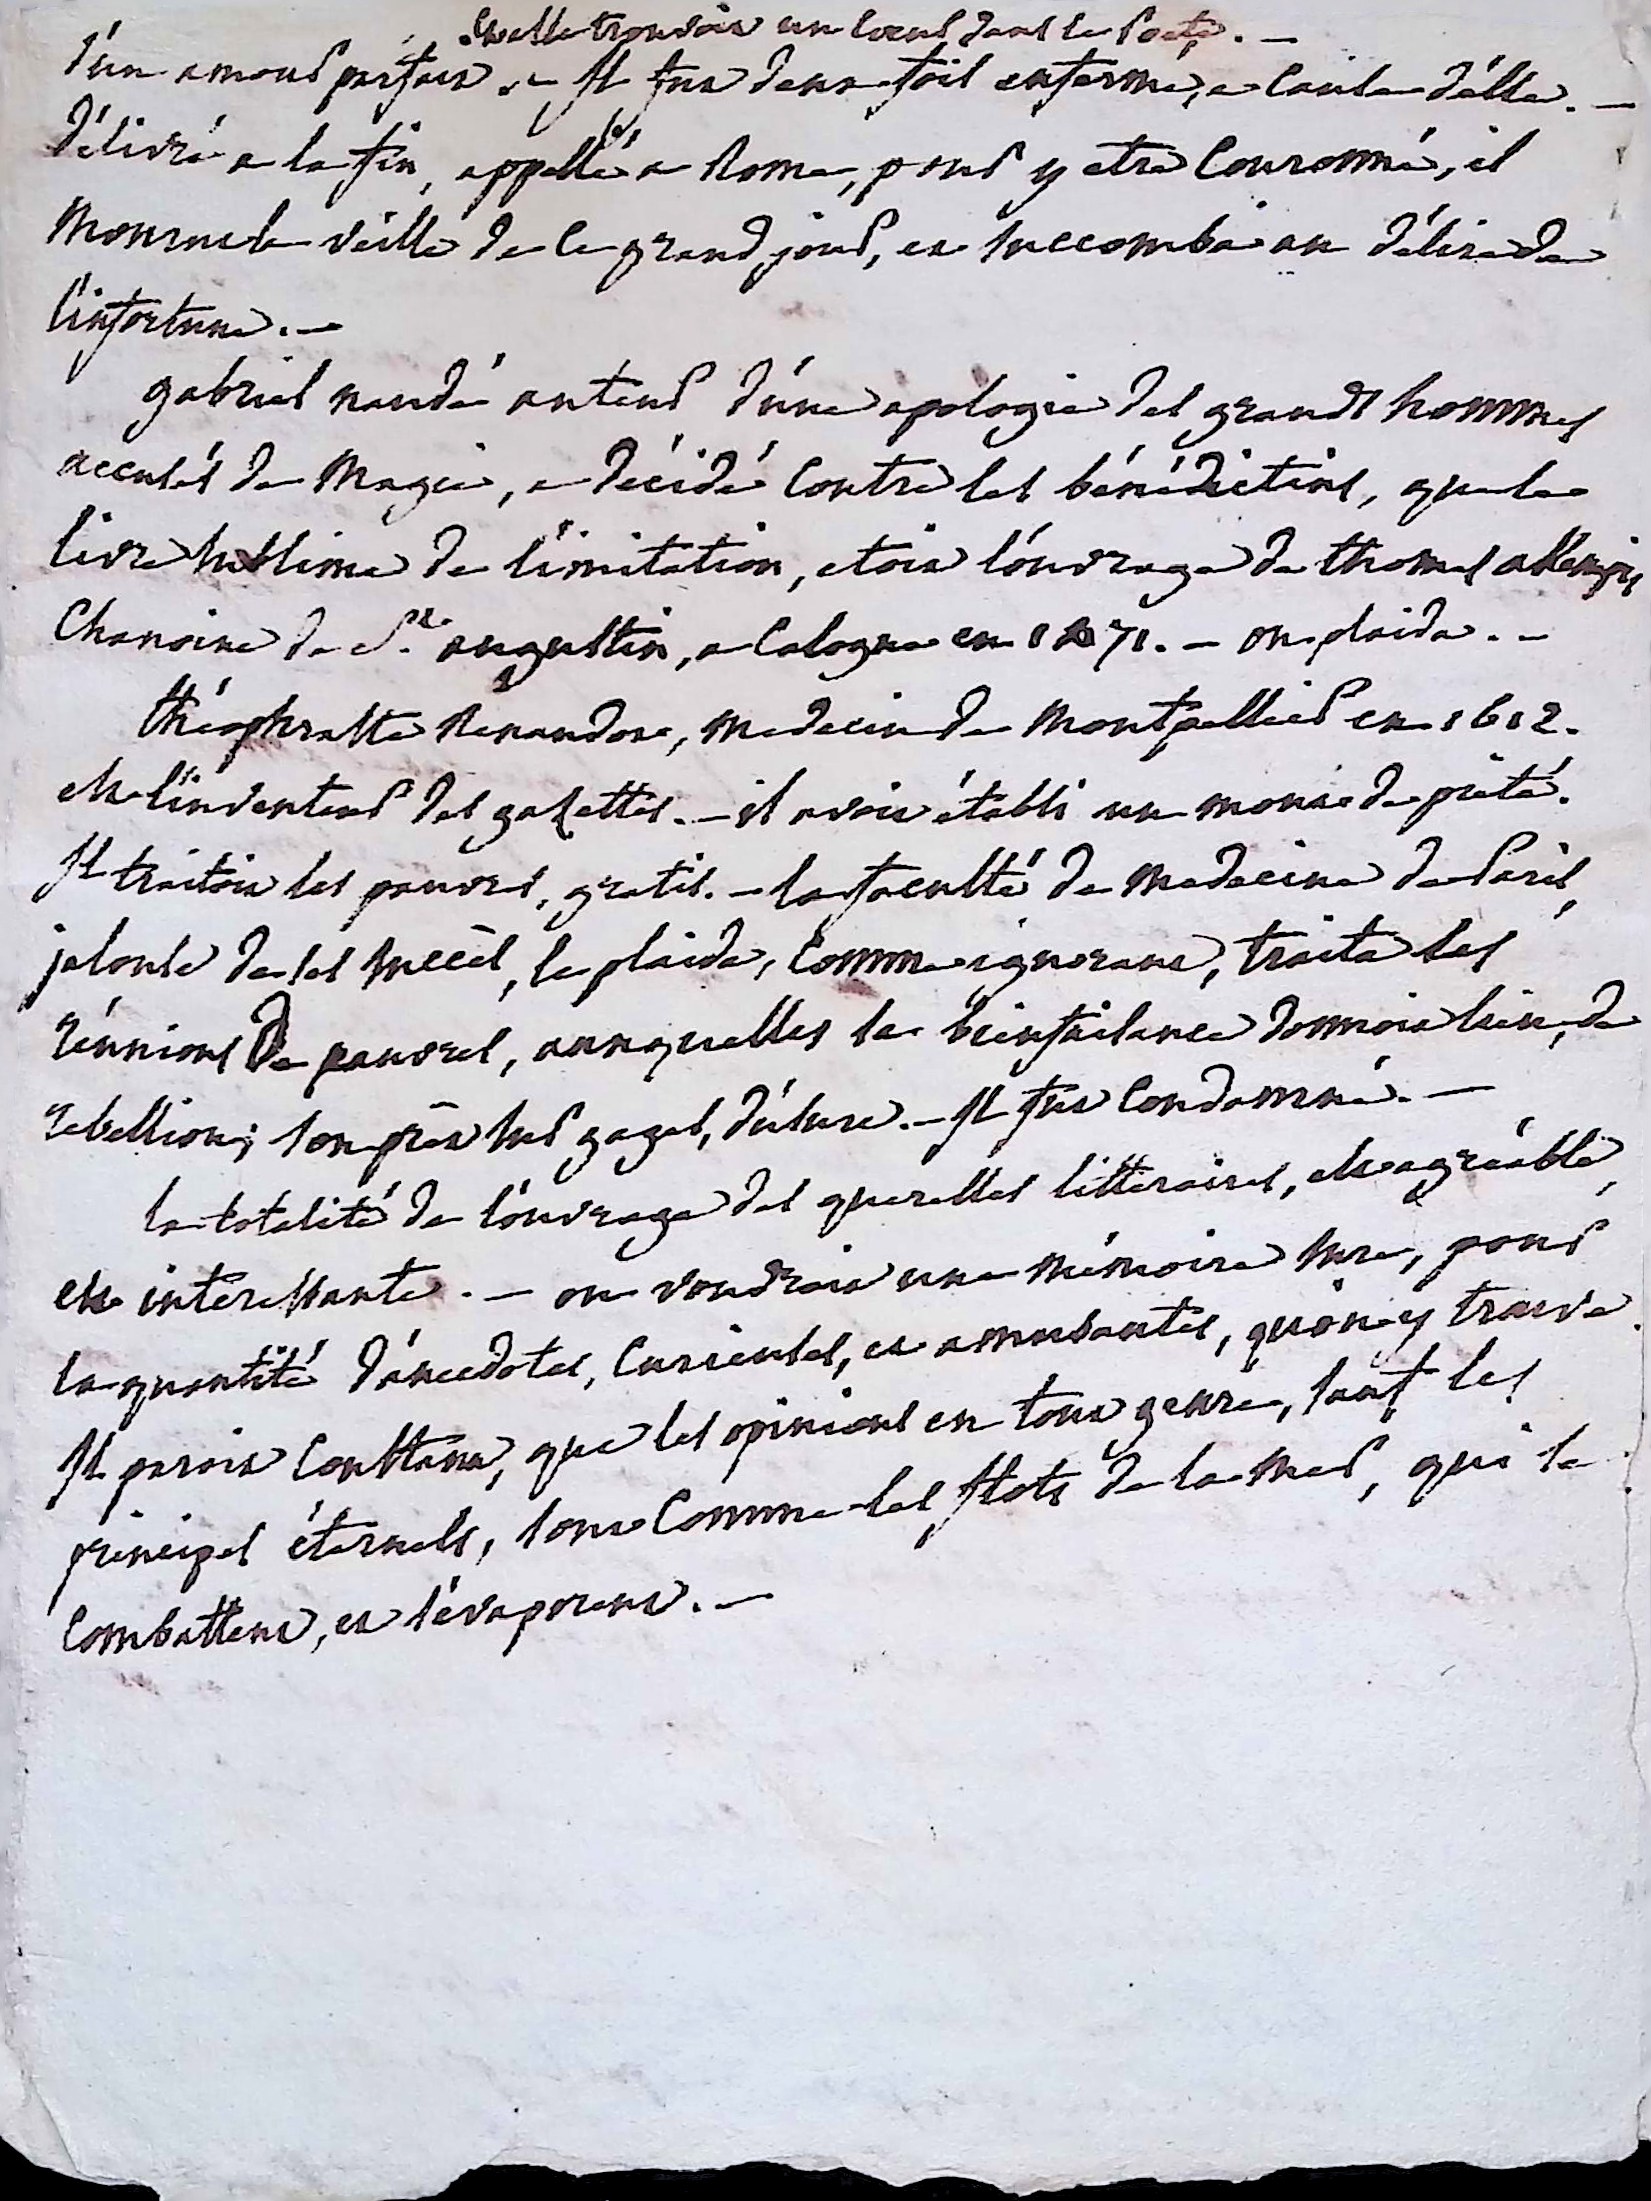 qu'elle trouvoit un coeur dans le Poete. —
d'un amour parfait. — Il fut deux fois enfermé, a cause d'elle. —
délivré a la fin, appellé a Rome, pour y etre Couronné, il
Mourut la veille de ce grand jour, et succomba au délire de
l'infortune. —
gabriel naudé auteur d'une apologie des grands hommes
accusés de Magie, a décidé Contre les bénédictins, que le
livre sublime de l'imitation, etoit l'ouvrage de thomas
Chanoine de St. augustin, a Cologne en 1471. — on plaida. —
théophraste Renaudot, medecin de Montpellier en 1612.
est l'inventeur des gazettes. — il avoit établi un mont de piété.
Il traitoit les pauvres, gratis. — la faculté de medecine de Paris,
jalouse de ses succès, le plaida, Comme ignorant, traita les
réunions De pauvres, auxquelles sa bienfaisance donnoit lieu, de
rebellion; son prêt sur gages, d'usure. — Il fut Condamné. —
la totalité de l'ouvrage des querelles litteraires, est agréable,
est interessante. — on voudroit une mémoire sure, pour
la quantité d'anecdotes, Curieuses, et amusantes, qu'on y trouve.
Il paroit Constant, que les opinions en tout genre, sauf les
principes éternels, sont Comme les flots de la mer, qui se
Combattent, et s'évaporent. —